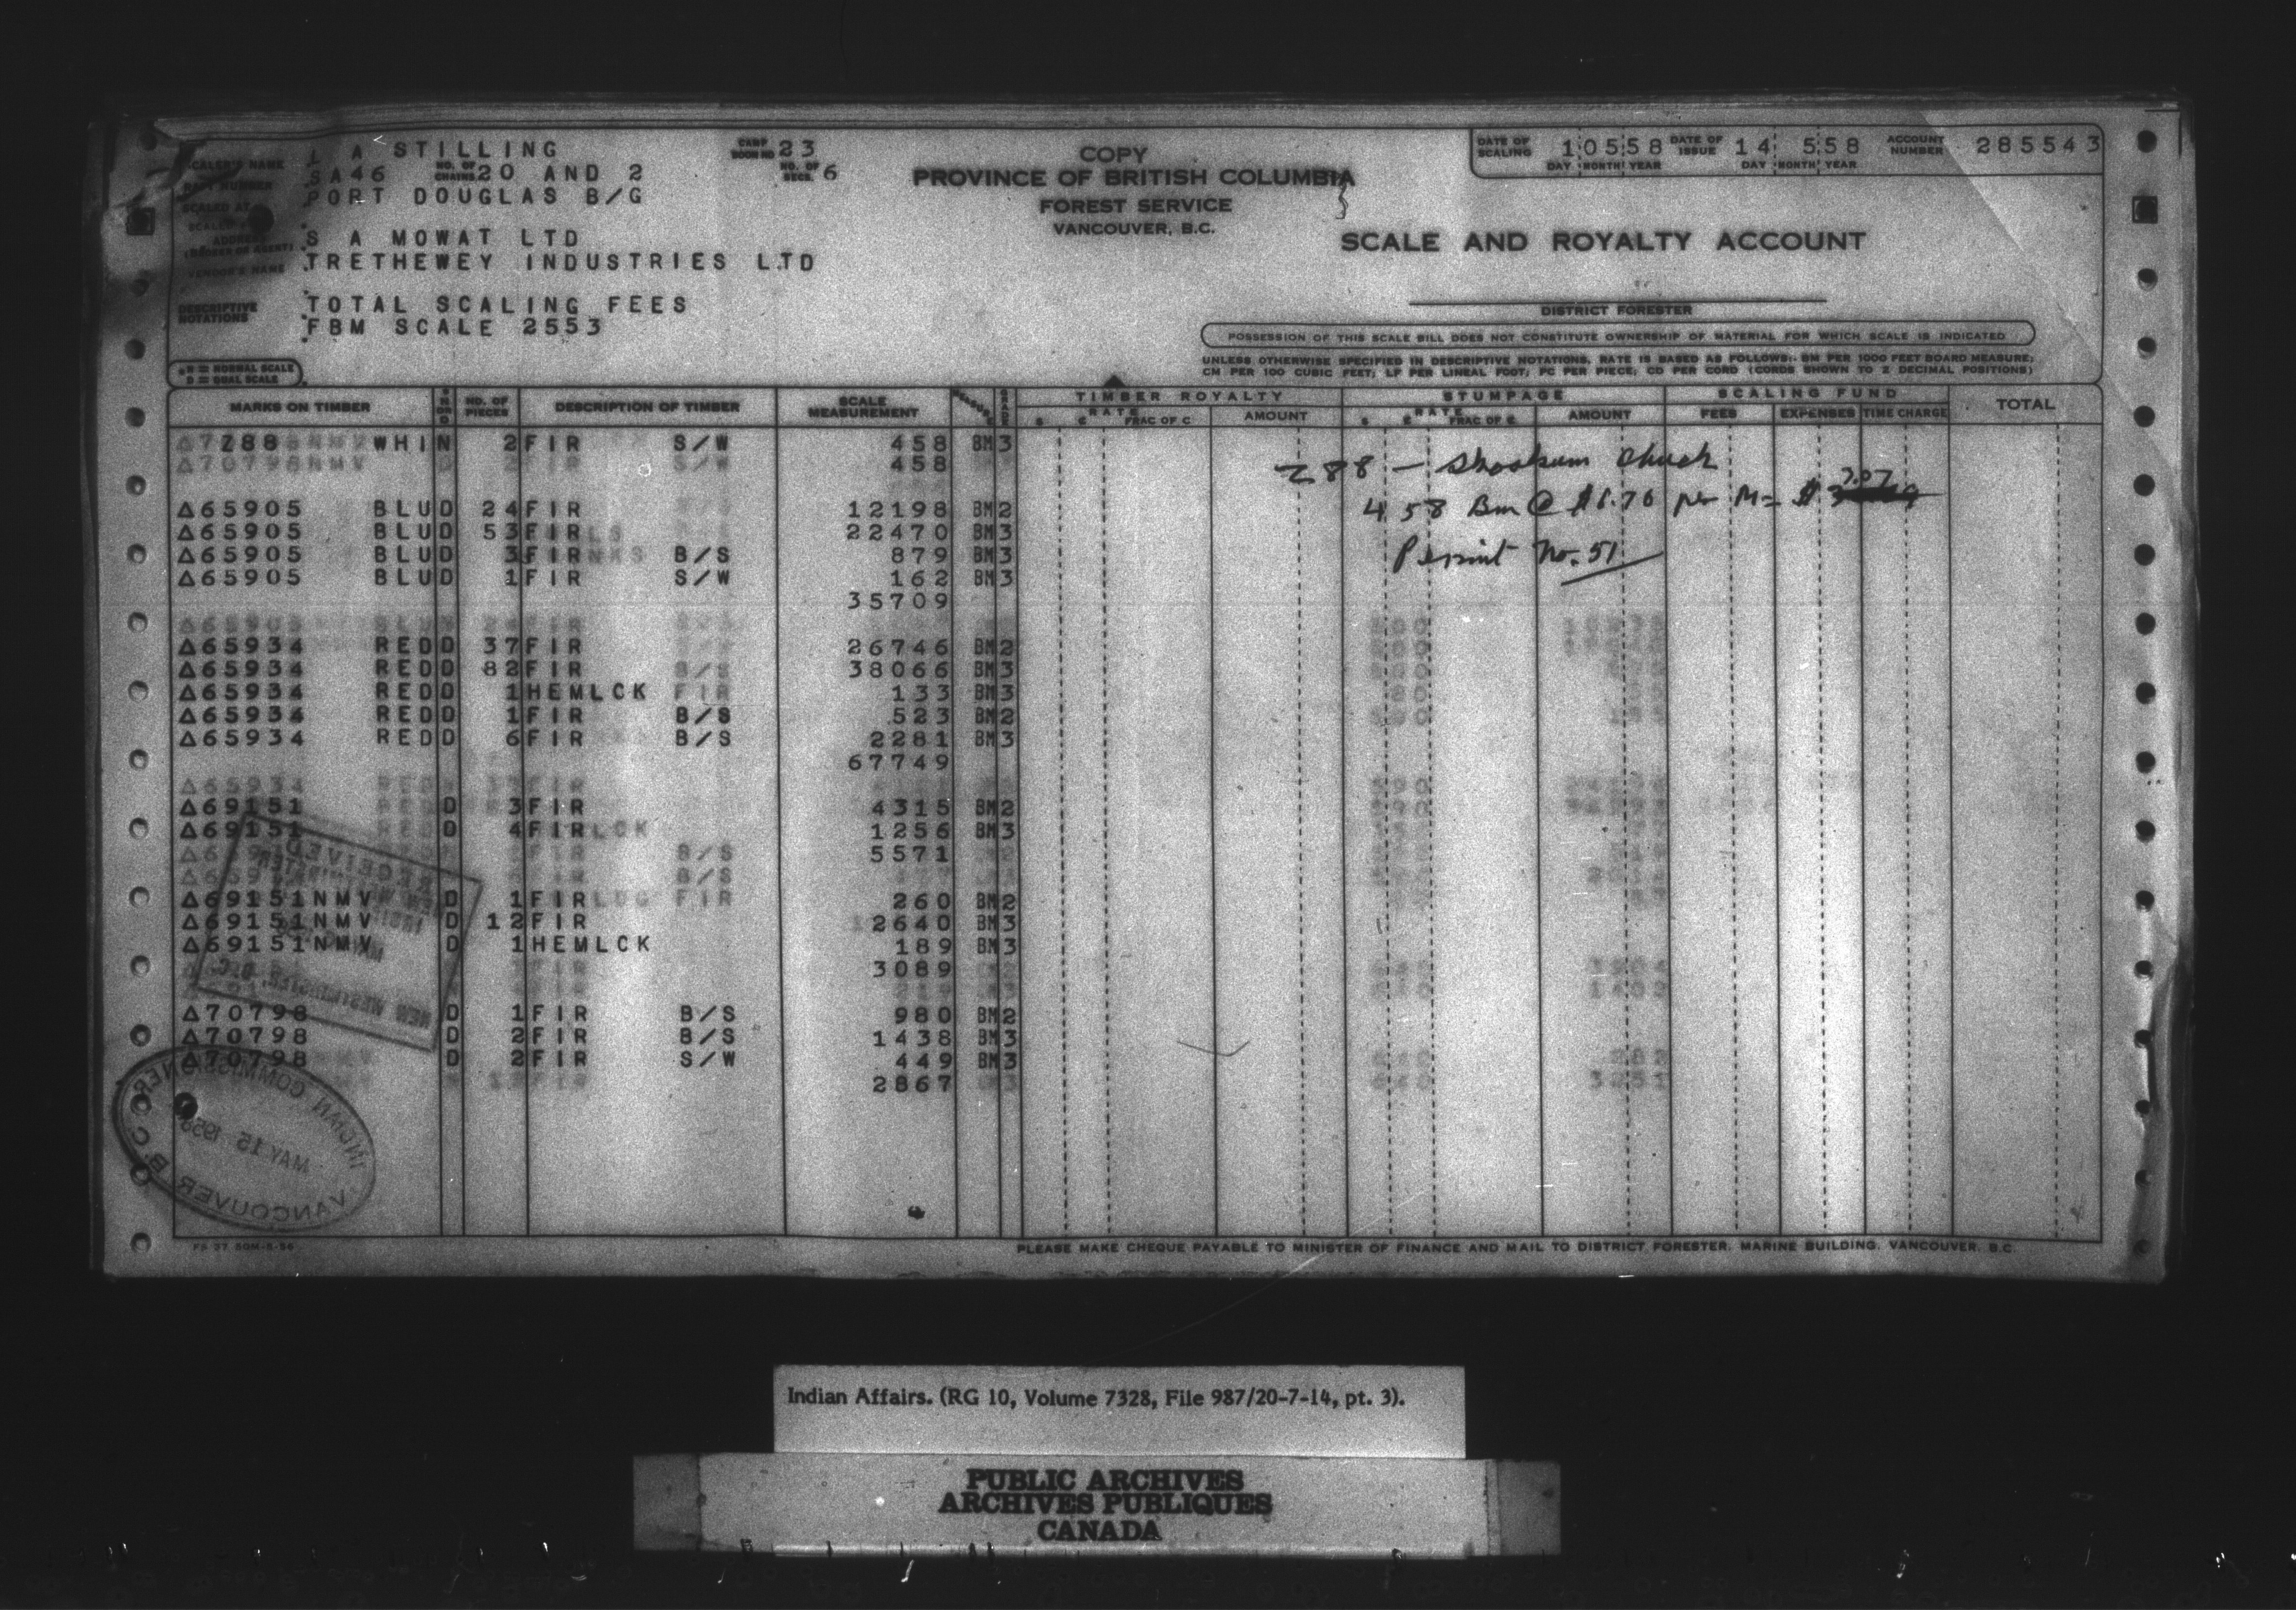 SCALER'S NAME L A STILLING CAMP BOOM NO 23
RAFT NUMBER SA46 NO. OF CHAINS 20 AND 2 NO. OF SECS. 6
SCALED AT PORT DOUGLAS B/G
ADDRESS (OWNER OR AGENT) S A MOWAT LTD
VENDOR'S NAME TRETHEWEY INDUSTRIES LTD
DESCRIPTIVE NOTATIONS TOTAL SCALING FEES
FBM SCALE 2553
COPY
PROVINCE OF BRITISH COLUMBIA
FOREST SERVICE
VANCOUVER, B.C.
DATE OF SCALING 10558 DATE OF ISSUE 14 558 ACCOUNT NUMBER 285543
DAY MONTH YEAR DAY MONTH YEAR
SCALE AND ROYALTY ACCOUNT
DISTRICT FORESTER
POSSESSION OF THIS SCALE BILL DOES NOT CONSTITUTE OWNERSHIP OF MATERIAL FOR WHICH SCALE IS INDICATED
UNLESS OTHERWISE SPECIFIED IN DESCRIPTIVE NOTATIONS, RATE IS BASED AS FOLLOWS:- BM PER 1000 FEET BOARD MEASURE;
CM PER 100 CUBIC FEET; LF PER LINEAL FOOT; PC PER PIECE; CD PER CORD (CORDS SHOWN TO 2 DECIMAL POSITIONS)
N = NORMAL SCALE
D = DUAL SCALE
MARKS ON TIMBER N OR D NO. OF PIECES DESCRIPTION OF TIMBER SCALE MEASUREMENT MEASURE GRADE TIMBER ROYALTY STUMPAGE SCALING FUND TOTAL
$ RATE ¢ FRAC OF C AMOUNT $ RATE ¢ FRAC OF ¢ AMOUNT FEES EXPENSES TIME CHARGE
Z88 WHI N 2 FIR S/W 458 BM 3
458
Z88 — Skookum Chuck
458 Bm @ $6.70 per M = $ 3.07
Permit No. 51
△65905 BLU D 24 FIR 12198 BM 2
△65905 BLU D 53 FIR 22470 BM 3
△65905 BLU D 3 FIR B/S 879 BM 3
△65905 BLU D 1 FIR S/W 162 BM 3
35709
△65934 RED D 37 FIR 26746 BM 2
△65934 RED D 82 FIR 38066 BM 3
△65934 RED D 1 HEMLCK 133 BM 3
△65934 RED D 1 FIR B/S 523 BM 2
△65934 RED D 6 FIR B/S 2281 BM 3
67749
△69151 D 3 FIR 4315 BM 2
△69151 D 4 FIR 1256 BM 3
5571
△69151NMV D 1 FIR 260 BM 2
△69151NMV D 12 FIR 2640 BM 3
△69151NMV D 1 HEMLCK 189 BM 3
3089
△70798 D 1 FIR B/S 980 BM 2
△70798 D 2 FIR B/S 1438 BM 3
△70798 D 2 FIR S/W 449 BM 3
2867
RECEIVED
NEW WESTMINSTER, B.C.
INDIAN COMMISSIONER
MAY 15 1958
VANCOUVER B.C.
FS 37 50M-5-56
PLEASE MAKE CHEQUE PAYABLE TO MINISTER OF FINANCE AND MAIL TO DISTRICT FORESTER, MARINE BUILDING, VANCOUVER, B.C.
Indian Affairs. (RG 10, Volume 7328, File 987/20-7-14, pt. 3).
PUBLIC ARCHIVES
ARCHIVES PUBLIQUES
CANADA